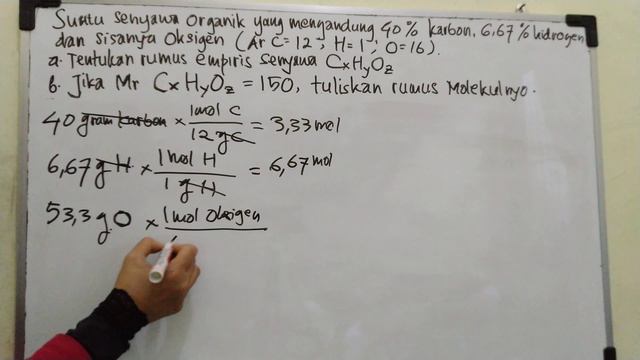 Suatu senyawa organik yang mengandung 40% karbon, 6,67% hidrogen
dan sisanya Oksigen (Ar C=12; H=1; O=16).
a. Tentukan rumus empiris senyawa CxHyOz
b. Jika Mr CxHyOz = 150, tuliskan rumus Molekulnyo.
40 gram karbon × 1 mol C / 12 g C = 3,33 mol
6,67 g H × 1 mol H / 1 g H = 6,67 mol
53,3 g O × 1 mol Oksigen /